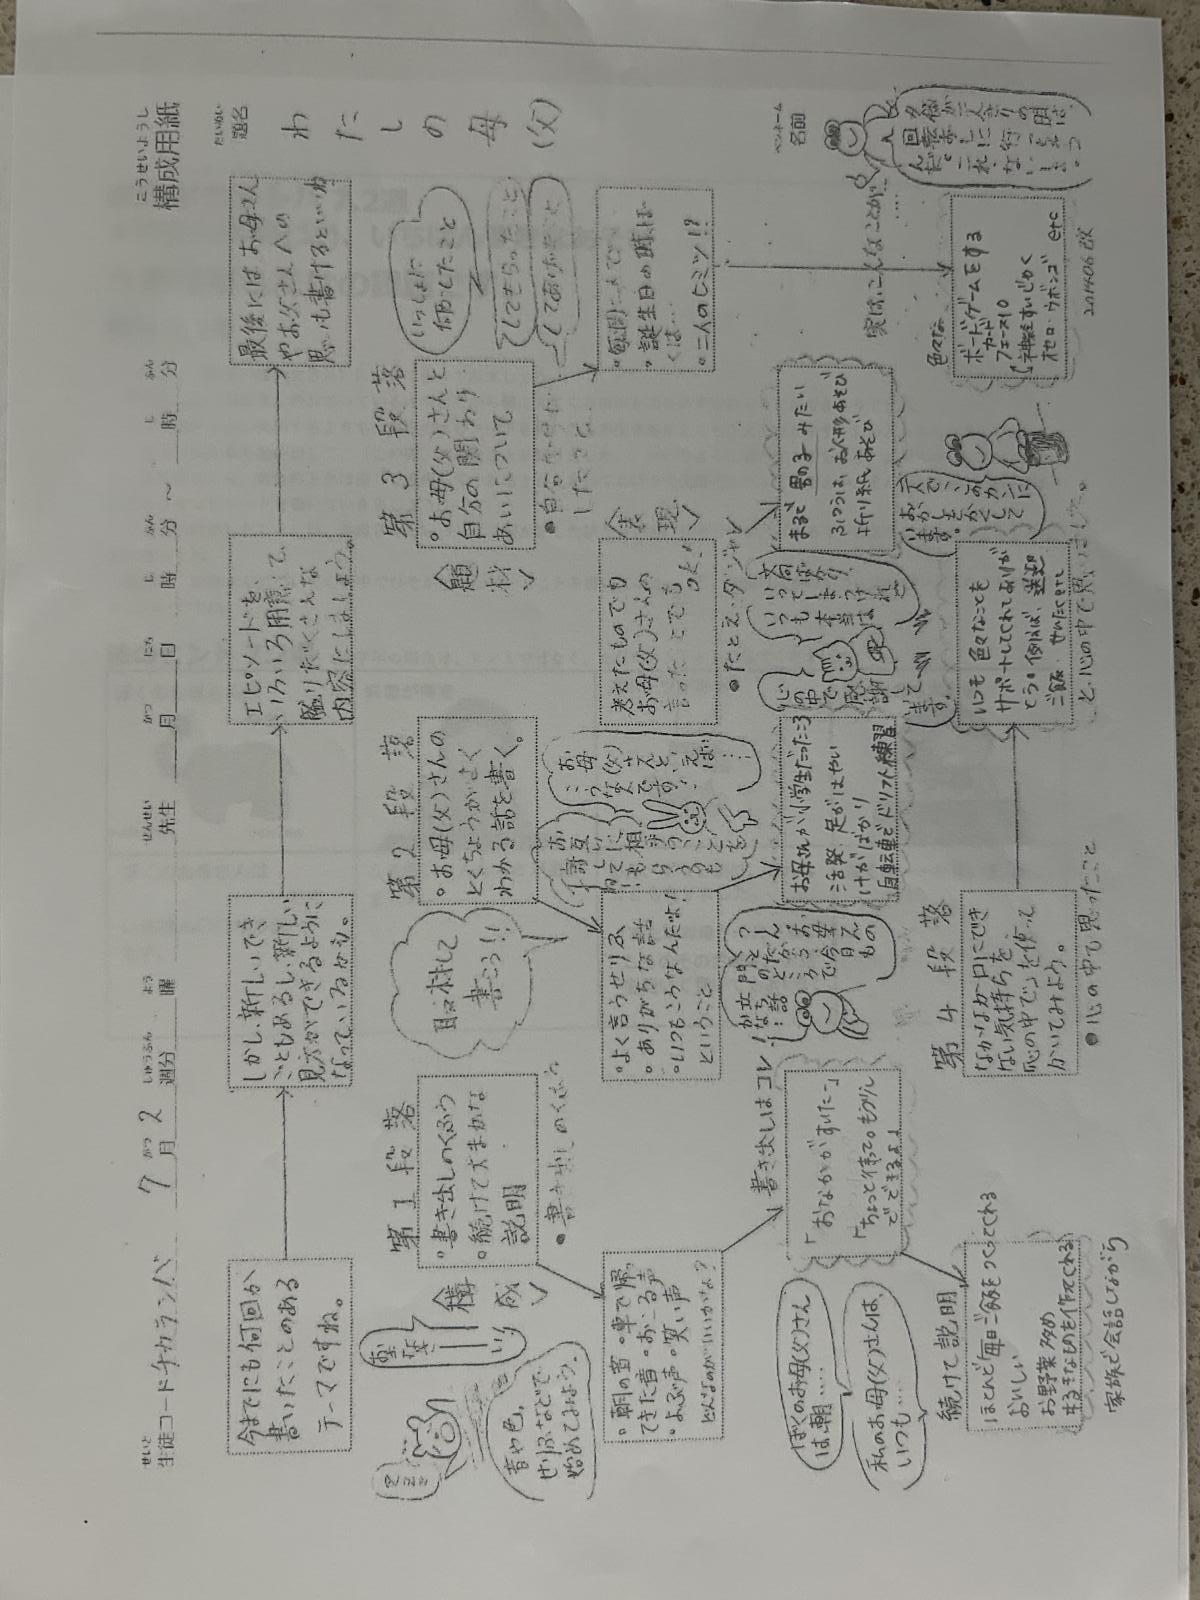 こうせいようし
構成用紙
せいと
生徒コード チカランバ
がつ
7月2
しゅうぶん
週分
よう
曜
せんせい
先生
がつ
月
にち
日
じ
時
ふん
分
～
じ
時
ふん
分
だいめい
題名
わたしの母(父)
ペンネーム
名前
今までにも何回か
書いたことのある
テーマですね。
しかし、新しいでき
ごともあるし、新しい
見方ができるように
なっているかな。
エピソードを、
いろいろ用意して、
盛りだくさんな
内容にしましょう。
最後にはお母さん
やお父さんへの
思いも書けるといいね
第1段落
構成
・書き出しのくふう
・続けて大まかな
説明
・書き出しのくふう
音や色、
せりふなどで
始めてみよう。
・朝の音・車で帰っ
てきた音・おこる声
・よぶ声・笑い声
どんなのがいいかな?
書き出しはコレ!
「おなかがすいた」
「ちょっと待って。もう少し
でできるよ」
ぼくのお母(父)さん
は、朝……
私のお母(父)さんは、
いつも…
続けて説明
ほとんど毎日ご飯をつくってくれる
おいしい
お野菜多め
家族で会話しながら
第2段落
・お母(父)さんの
とくちょうがよく
わかる話を書く。
取材して
書こう!!
・よく言うせりふ
・ありがちな話
・いつもこうなんだよ!
ということ
お母(父)さんと、いえば…
こうな人です。
お母さんが小学生だったころ
活発、足がはやい
けがばかり
自転車でドリフト練習
題材
表現
考えたものでも
お母(父)さんの
言ったことでもOK!
・たとえ・ダジャレ
まるで男の子みたい
ふつうは、お人形あそび
折り紙あそび
第3段落
・お母(父)さんと
自分の関わり
あいについて
いっしょに
何かしたこと
してもらったこと
してあげたこと
・毎週二人で
・誕生日の時、ぼ
くは…
・二人のヒミツ!?
実は、こんなことが……
色々な
ボードゲームをする
カード
フェーズ10
神経すいじゃく
オセロ・ウボンゴ etc
第4段落
なかなか口にでき
ない気持ちを
「心の中で」を使って
かいてみよう。
・心の中で思ったこと
いつも色々なことを
サポートしてくれてありが
とう。例えば、送迎
ご飯、せんたくetc
と、心の中で思いました。
心の中で感謝しています。
201406改